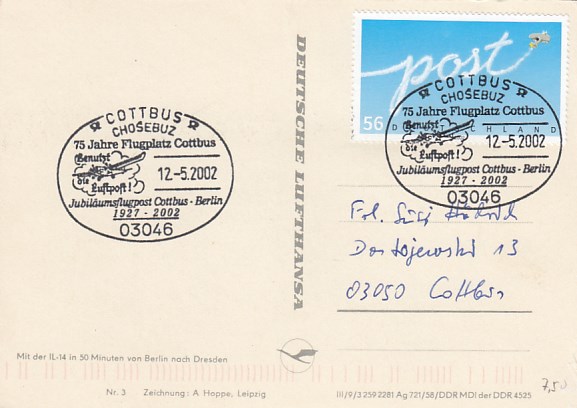 COTTBUS
CHOŚEBUZ
75 Jahre Flugplatz Cottbus
Benutzt
die
Luftpost!
12.-5.2002
Jubiläumsflugpost Cottbus - Berlin
1927 - 2002
03046
DEUTSCHE LUFTHANSA
post
56
DEUTSCHLAND
COTTBUS
CHOŚEBUZ
75 Jahre Flugplatz Cottbus
Benutzt
die
Luftpost!
12.-5.2002
Jubiläumsflugpost Cottbus - Berlin
1927 - 2002
03046
Frl.
Dostojewski 13
03050 Cottbus
Mit der IL-14 in 50 Minuten von Berlin nach Dresden
Nr. 3 Zeichnung: A. Hoppe, Leipzig
III/9/3 259 2281 Ag 721/58/DDR MDI der DDR 4525
7,50